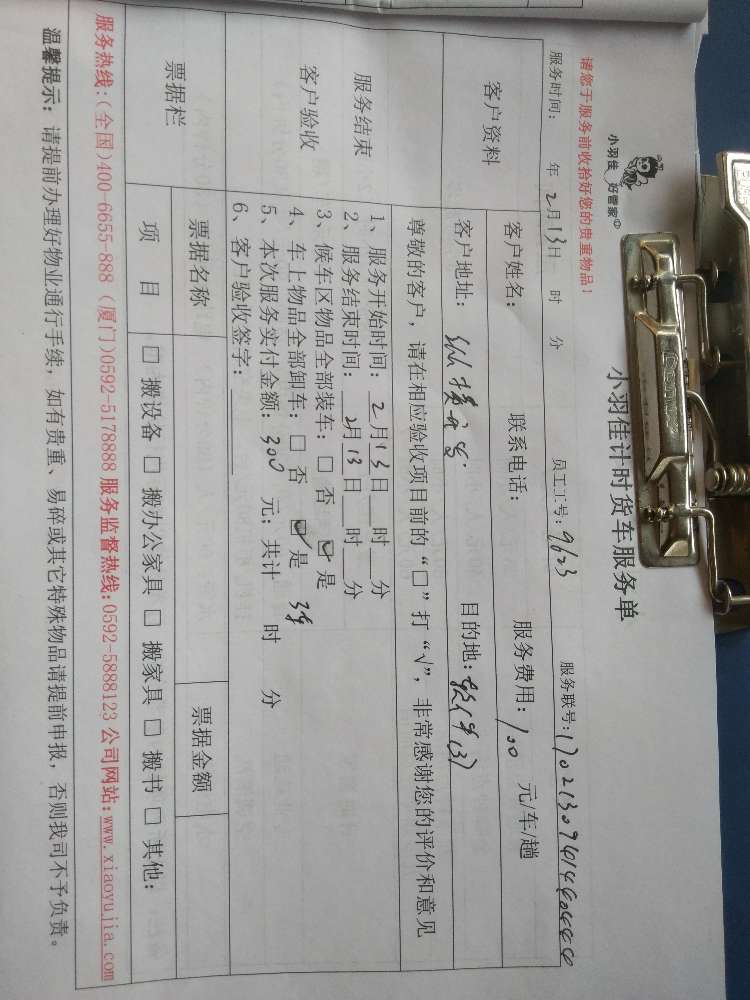 小羽佳 好管家
小羽佳计时货车服务单
请您于服务前收拾好您的贵重物品！
服务时间： 年 2月13日 时 分 员工工号：9623 服务联号：
客户资料
客户姓名： 联系电话： 服务费用：100 元/车/趟
客户地址： 目的地：
尊敬的客户，请在相应验收项目前的“□”打“√”，非常感谢您的评价和意见
服务结束
客户验收
1、服务开始时间：2月13日__时__分
2、服务结束时间：2月13日__时__分
3、候车区物品全部装车：□ 否 ☑ 是
4、车上物品全部卸车：□ 否 ☑ 是
5、本次服务实付金额：300 元；共计 时 分
6、客户验收签字：
票据栏 票据名称 票据金额
项 目 □ 搬设备 □ 搬办公家具 □ 搬家具 □ 搬书 □ 其他：
服务热线：(全国)400-6655-888 (厦门)0592-5178888 服务监督热线：0592-5888123 公司网站：www.xiaoyujia.com
温馨提示：请提前办理好物业通行手续，如有贵重、易碎或其它特殊物品请提前申报，否则我司不予负责。